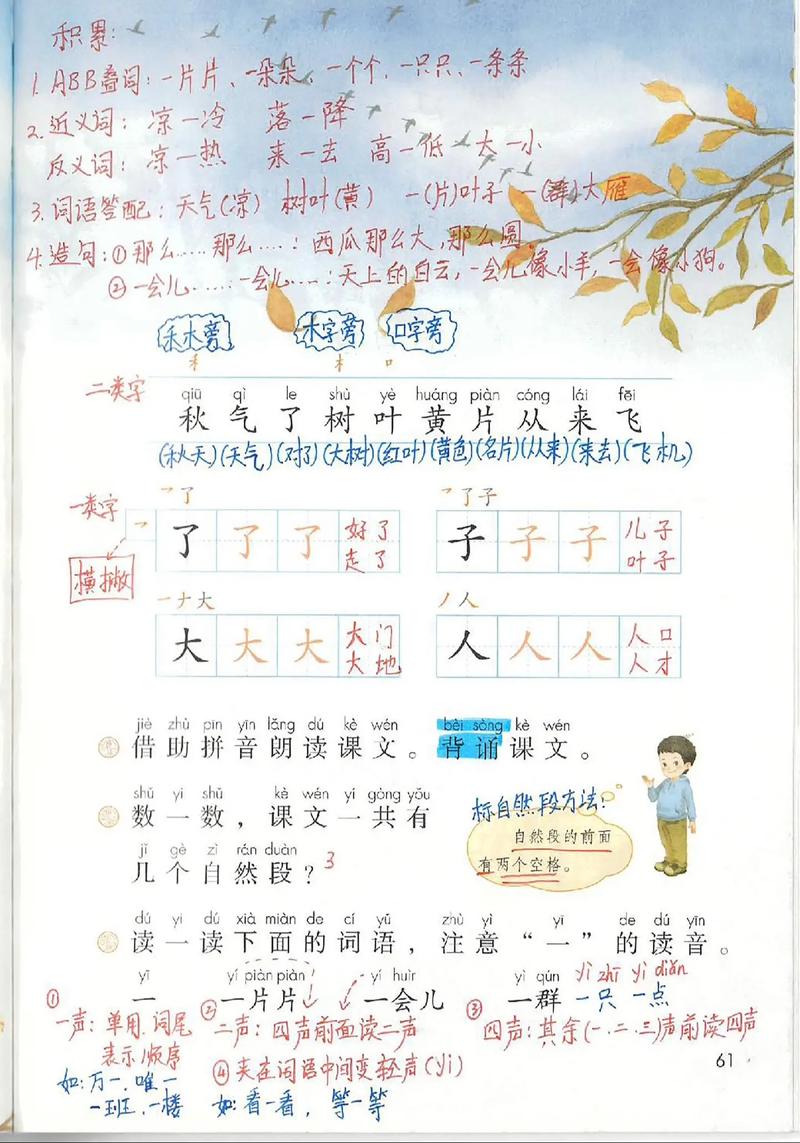 积累:
1. ABB叠词:一片片、一朵朵、一个个、一只只、一条条
2. 近义词: 凉—冷 落—降
反义词: 凉—热 来—去 高—低 大—小
3. 词语答配:天气(凉) 树叶(黄) 一(片)叶子 一(群)大雁
4. 造句:①那么……那么……:西瓜那么大,那么圆。
②一会儿……一会儿……:天上的白云,一会儿像小羊,一会像小狗。
禾木旁 木字旁 口字旁
禾 木 口
二类字
qiū qì le shù yè huáng piàn cóng lái fēi
秋 气 了 树 叶 黄 片 从 来 飞
(秋天)(天气)(对了)(大树)(红叶)(黄色)(名片)(从来)(来去)(飞机)
一类字
乛了 乛了子
乛 了 了 了 好了 走了 子 子 子 儿子 叶子
横撇
一ナ大 丿人
大 大 大 大门 大地 人 人 人 人口 人才
jiè zhù pīn yīn lǎng dú kè wén bèi sòng kè wén
借助拼音朗读课文。背诵课文。
shǔ yi shǔ kè wén yí gòng yǒu
数一数,课文一共有
jǐ gè zì rán duàn
几个自然段?3
标自然段方法:
自然段的前面
有两个空格。
dú yi dú xià miàn de cí yǔ zhù yì yī de dú yīn
读一读下面的词语,注意“一”的读音。
yī yí piàn piàn yí huìr yì qún yì zhī yì diǎn
一 一片片 一会儿 一群 一只 一点
① 一声:单用.词尾
表示顺序
如:万一.唯一
一班.一楼
② 二声:四声前面读二声
③ 四声:其余(一.二.三)声前读四声
④ 夹在词语中间变轻声(yi)
如:看一看,等一等
61